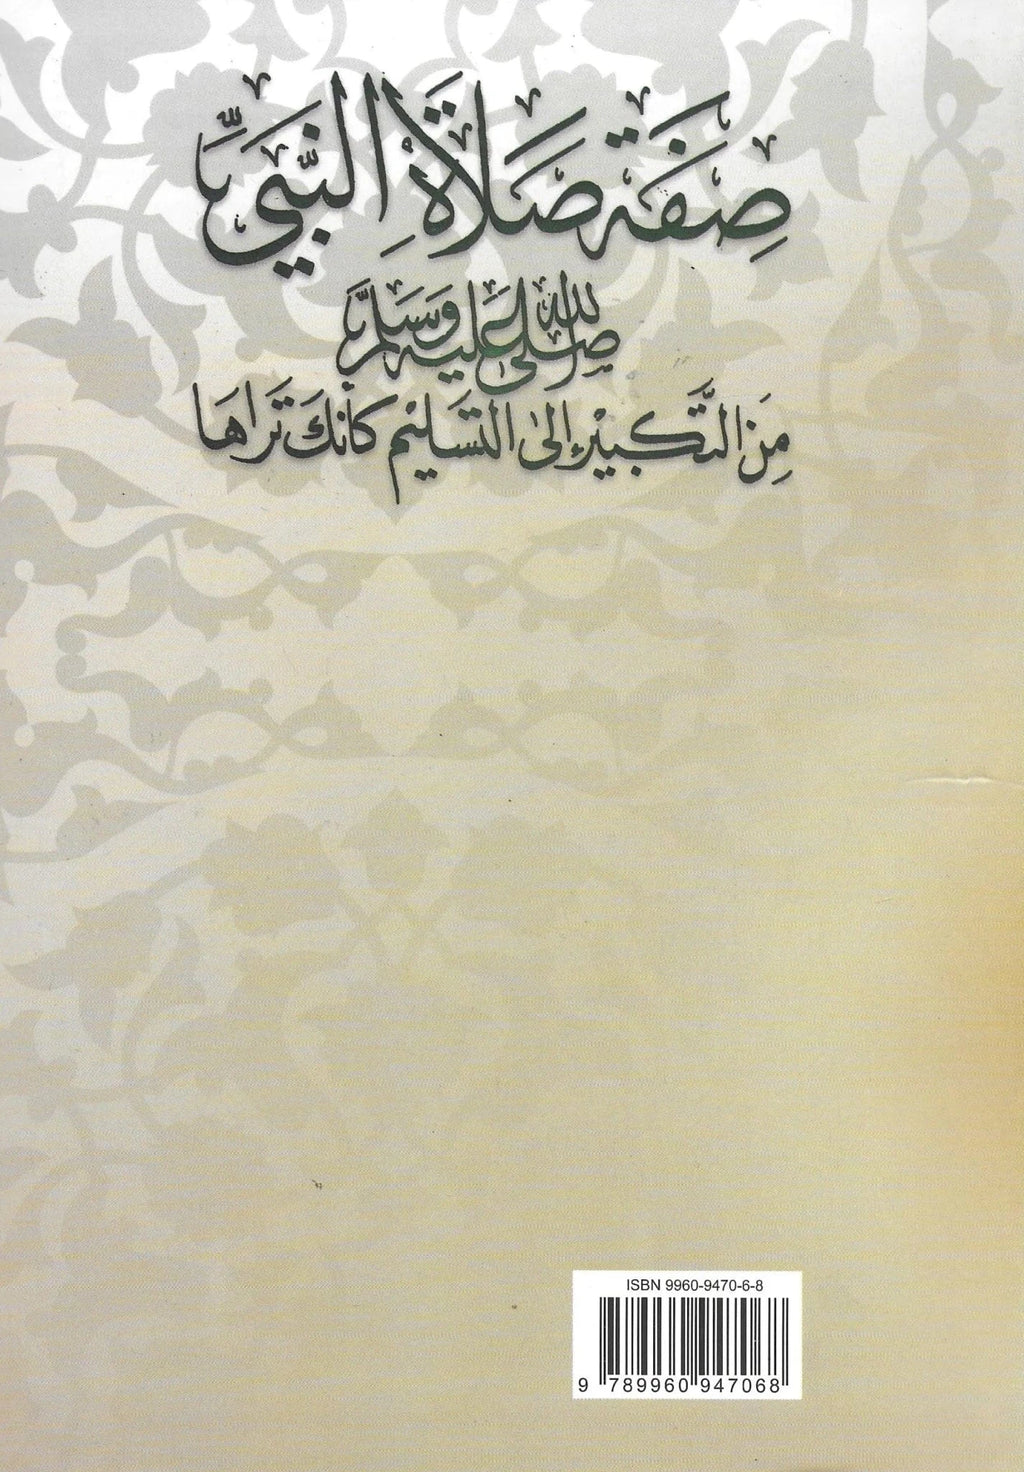 صِفَة صَلَاةِ النَّبِيِّ
صلى الله عليه وسلم
مِنَ التَّكْبِيْرِ إِلىٰ التَّسْلِيْمِ كَأَنَّكَ تَرَاهَا
ISBN 9960-9470-6-8
9 789960 947068